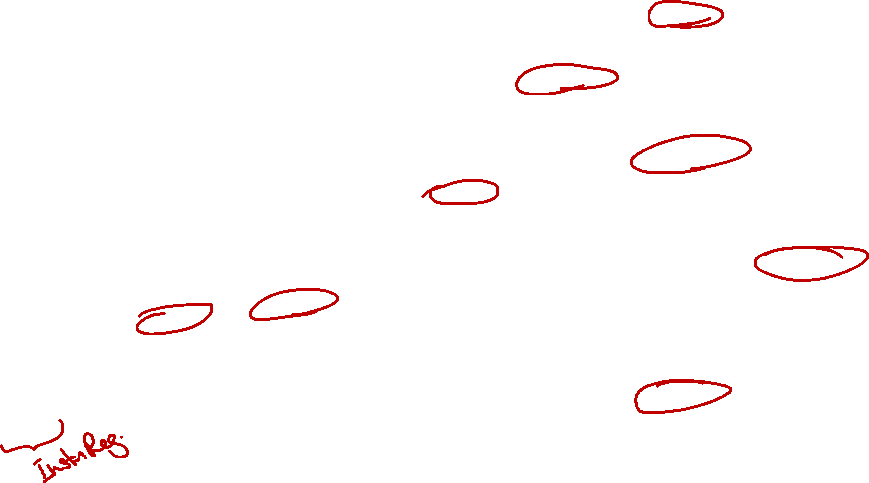 Instr Reg.